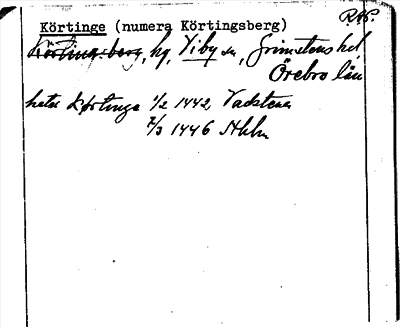 RAP.
Körtinge (numera Körtingsberg)
Körtingsberg, hg, Viby sn, Grimstens hd,
Örebro län
hete Kørtinge 1/2 1442, Vadstena
2/3 1446 Sthlm